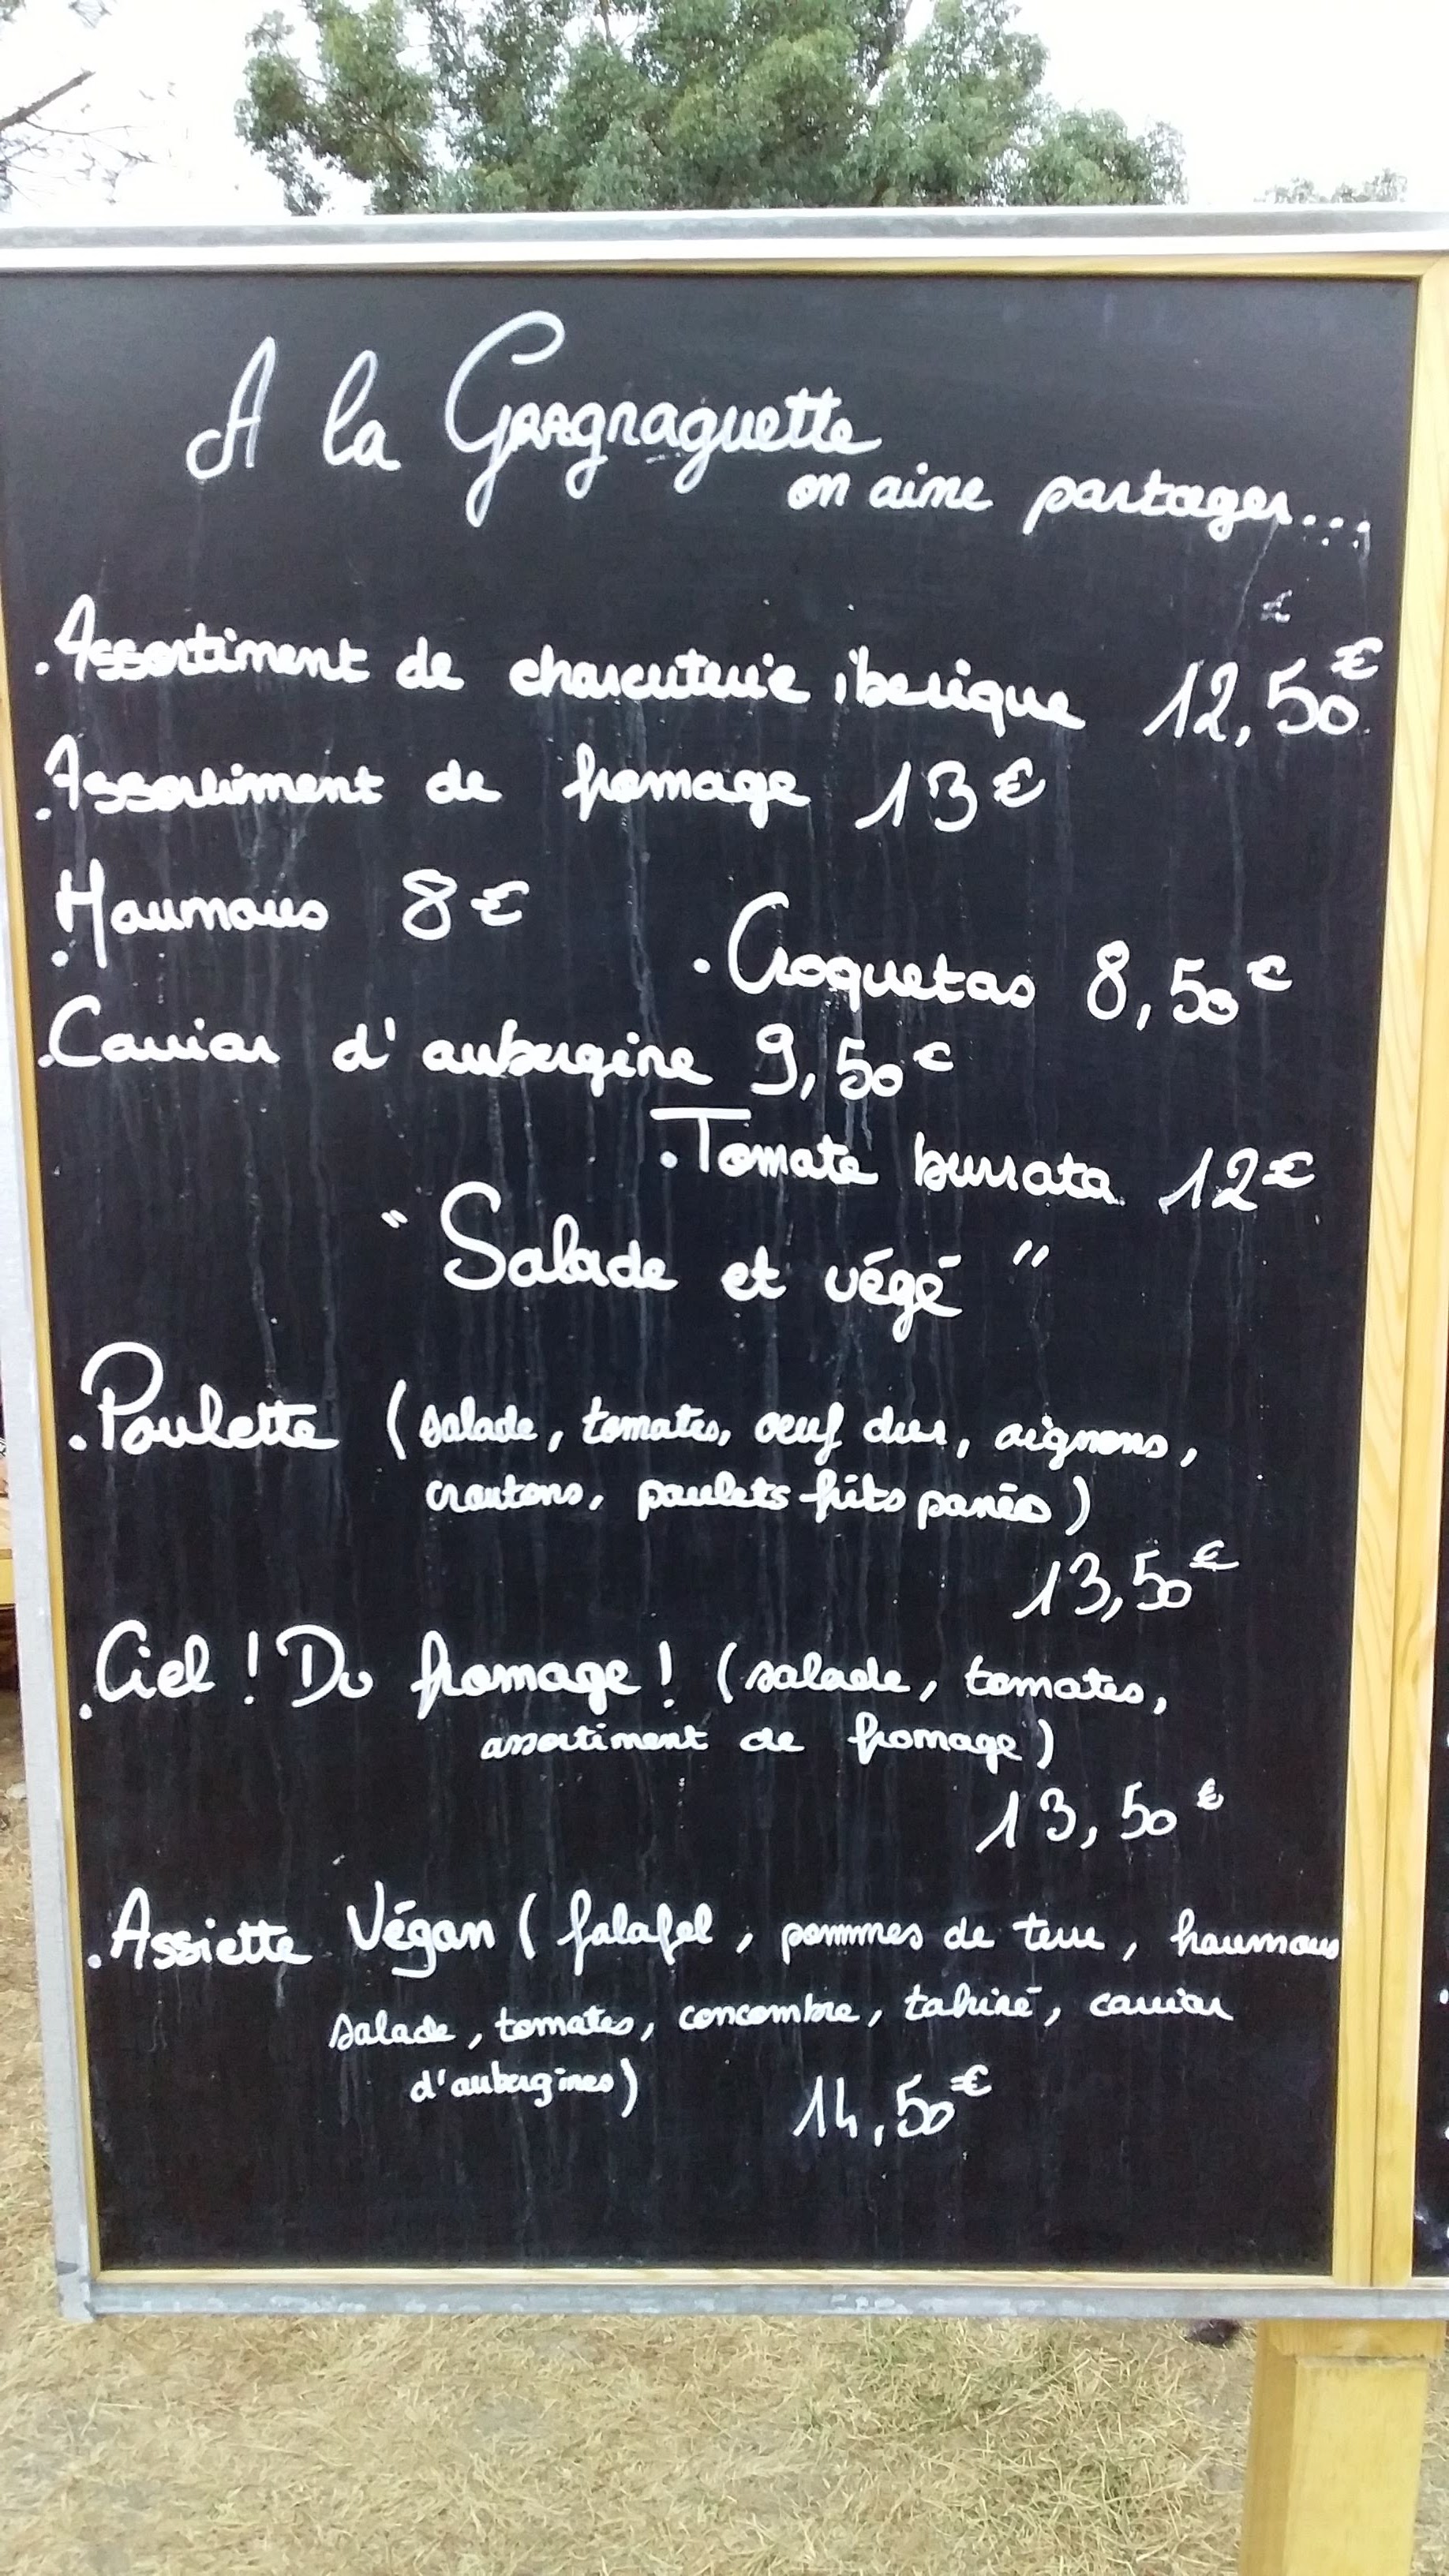 A la Gragnaguette
on aime partager...
.Assortiment de charcuterie iberique 12,50€
.Assortiment de fromage 13€
.Houmous 8€
.Croquetas 8,50€
.Caviar d'aubergine 9,50€
.Tomate burrata 12€
"Salade et végé"
.Poulette (salade, tomates, oeuf dur, oignons,
croutons, poulets frits panés)
13,50€
.Ciel ! Du fromage ! (salade, tomates,
assortiment de fromage)
13,50€
.Assiette Végan (falafel, pommes de terre, houmous
salade, tomates, concombre, tahiné, caviar
d'aubergines) 14,50€